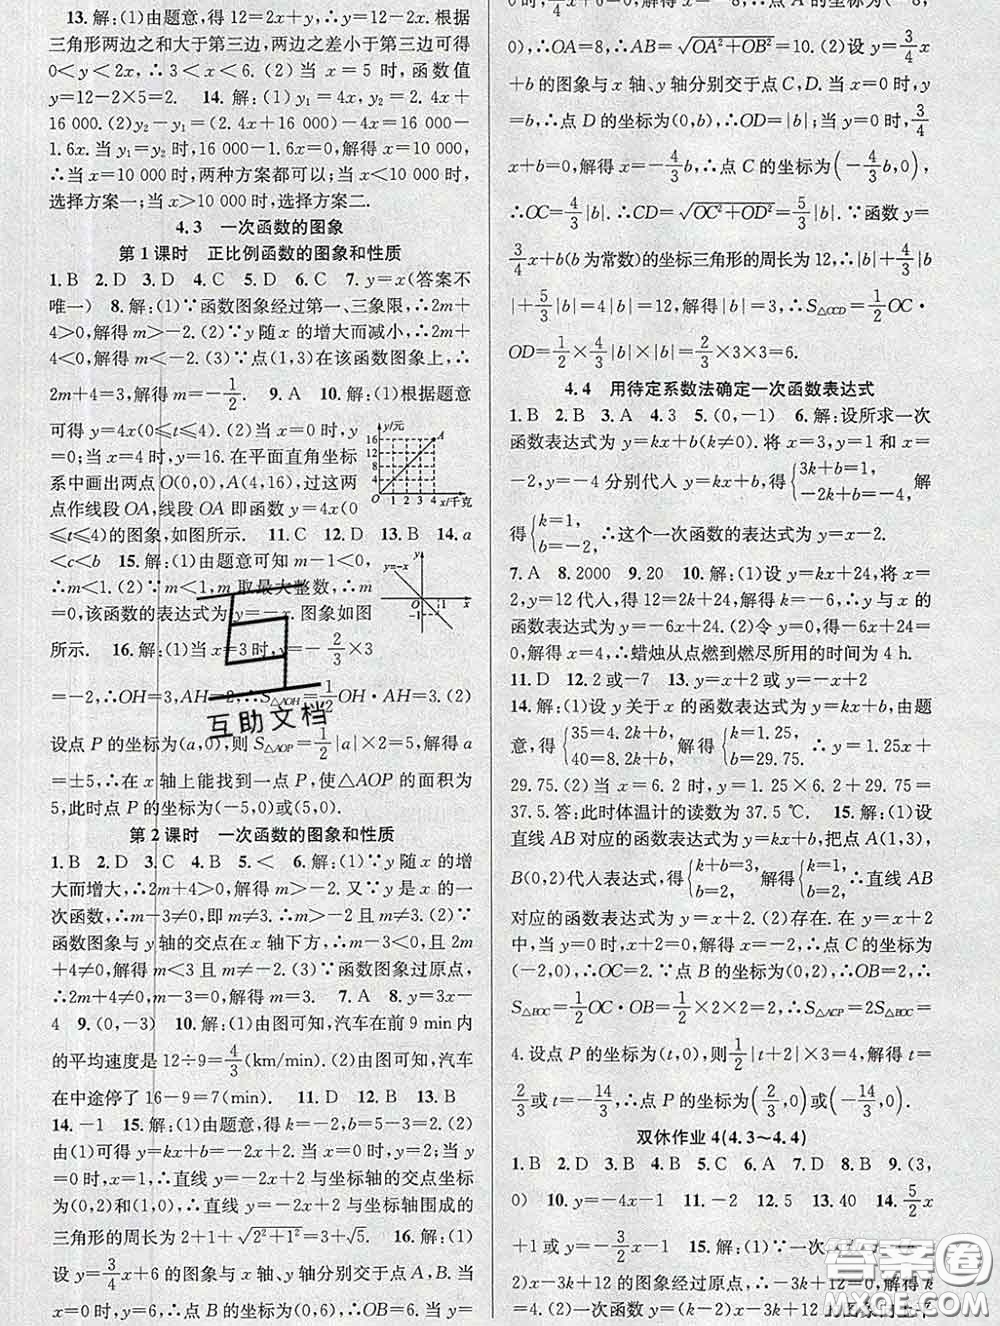 13. 解:(1)由题意,得 12=2x+y,∴y=12-2x. 根据
三角形两边之和大于第三边,两边之差小于第三边可得
0<y<2x,∴3<x<6. (2)当 x=5 时,函数值
y=12-2×5=2. 14. 解:(1)y₁=4x,y₂=2.4x+
16 000. (2)y₂-y₁=(2.4x+16 000)-4x=16 000-
1.6x. 当 y₁=y₂ 时,16 000-1.6x=0,解得 x=10 000.
∴当 x=10 000 时,两种方案都可以;当 x<10 000 时,
选择方案一;当 x>10 000 时,选择方案二.
4.3 一次函数的图象
第 1 课时 正比例函数的图象和性质
1. B 2. D 3. D 4. C 5. D 6. C 7. y=x(答案不
唯一) 8. 解:(1)∵函数图象经过第一、三象限,∴2m+
4>0,解得 m>-2. (2)∵y 随 x 的增大而减小,∴2m+
4<0,解得 m<-2. (3)∵点(1,3)在该函数图象上,∴
2m+4=3,解得 m=-1/2. 9. A 10. 解:(1)根据题意
可得 y=4x(0≤x≤4). (2)当 x=0 时,
y=0;当 x=4 时,y=16. 在平面直角坐标
系中画出两点 O(0,0),A(4,16),过这两
点作线段 OA,线段 OA 即函数 y=4x(0
≤x≤4)的图象,如图所示. 11. C 12. D 13. B 14. a
y/元
16
12
8
4
A
O
1 2 3 4
x/千克
<c<b 15. 解:(1)由题意可知 m-1<0,
∴m<1. (2)∵m<1,m 取最大整数,∴m
=0,该函数的表达式为 y=-x. 图象如图
所示. 16. 解:(1)当 x=3 时,y=-2/3×3
y
y=-x
O
1
x
-1
=-2,∴OH=3,AH=2,∴S△AOH=1/2OH·AH=3. (2)
设点 P 的坐标为(a,0),则 S△AOP=1/2|a|×2=5,解得 a
=±5,∴在 x 轴上能找到一点 P,使△AOP 的面积为
5,此时点 P 的坐标为(-5,0)或(5,0).
第 2 课时 一次函数的图象和性质
1. B 2. D 3. C 4. B 5. < 6. 解:(1)∵y 随 x 的增
大而增大,∴2m+4>0,解得 m>-2. 又∵y 是 x 的一
次函数,∴m-3≠0,即 m≠3. ∴m>-2 且 m≠3. (2)∵
函数图象与 y 轴的交点在 x 轴下方,∴m-3<0 且 2m
+4≠0,解得 m<3 且 m≠-2. (3)∵函数图象过原点,
∴2m+4≠0,m-3=0,解得 m=3. 7. A 8. y=3x-
4 9. (0,-3) 10. 解:(1)由图可知,汽车在前 9 min 内
的平均速度是 12÷9=4/3(km/min). (2)由图可知,汽车
在中途停了 16-9=7(min). 11. D 12. B 13. B
14. -1 15. 解:(1)由题意,得 k=-2,∴y=-2x+b.
(2)由题意,得 k=-2,∴y=kx+b=-2x+5-3=
-2x+2,∴直线 y=-2x+2 与坐标轴的交点坐标为
(0,2)和(1,0),∴直线 y=-2x+2 与坐标轴围成的
三角形的周长为 2+1+√2²+1²=3+√5. 16. 解:(1)
设 y=3/4x+6 的图象与 x 轴、y 轴分别交于点 A,B. 当
x=0 时,y=6,∴点 B 的坐标为(0,6),∴OB=6. 当 y=
0,∴OA=8,∴AB=√OA²+OB²=10. (2)设 y=3/4x
+b 的图象与 x 轴、y 轴分别交于点 C,D. 当 x=0 时,y
=b,∴点 D 的坐标为(0,b),∴OD=|b|;当 y=0 时,3/4
x+b=0,解得 x=-4/3b,∴点 C 的坐标为(-4/3b,0),
∴OC=4/3|b|. ∴CD=√OC²+OD²=5/3|b|. ∵函数 y=
3/4x+b(b 为常数)的坐标三角形的周长为 12,∴|b|+4/3|b|
+5/3|b|=4|b|=12,解得|b|=3,∴S△OCD=1/2OC·
OD=1/2×4/3|b|×|b|=2/3×3×3=6.
4.4 用待定系数法确定一次函数表达式
1. B 2. B 3. A 4. 3 5. (0,-1) 6. 解:设所求一次
函数表达式为 y=kx+b(k≠0). 将 x=3,y=1 和 x=
-2,y=-4 分别代入 y=kx+b,得{3k+b=1, -2k+b=-4,解
得{k=1, b=-2,∴这个一次函数的表达式为 y=x-2.
7. A 8. 2000 9. 20 10. 解:(1)设 y=kx+24,将 x=
2,y=12 代入,得 12=2k+24,解得 k=-6,∴y 与 x 的
函数表达式为 y=-6x+24. (2)令 y=0,得-6x+24=
0,解得 x=4,∴蜡烛从点燃到燃尽所用的时间为 4 h.
11. D 12. 2 或-7 13. y=x+2 或 y=-x+2
14. 解:(1)设 y 关于 x 的函数表达式为 y=kx+b,由题
意,得{35=4.2k+b, 40=8.2k+b,解得{k=1.25, b=29.75,∴y=1.25x+
29.75. (2)当 x=6.2 时,y=1.25×6.2+29.75=
37.5. 答:此时体温计的读数为 37.5 ℃. 15. 解:(1)设
直线 AB 对应的函数表达式为 y=kx+b,把点 A(1,3),
B(0,2)代入表达式,得{k+b=3, b=2,解得{k=1, b=2,∴直线 AB
对应的函数表达式为 y=x+2. (2)存在. 在 y=x+2
中,当 y=0 时,x+2=0,解得 x=-2,∴点 C 的坐标为
(-2,0),∴OC=2. ∵点 B 的坐标为(0,2),∴OB=2,∴
S△BOC=1/2OC·OB=1/2×2×2=2,∴S△ACP=2S△BOC=
4. 设点 P 的坐标为(t,0),则1/2|t+2|×3=4,解得 t=
2/3或 t=-14/3,∴点 P 的坐标为(2/3,0)或(-14/3,0).
双休作业 4(4.3~4.4)
1. B 2. D 3. B 4. B 5. C 6. A 7. D 8. B 9. (3,
0) 10. y=-4x-1 11. -2 12. 5 13. 40 14. 5/2x
+1或 y=-3/2x-1 15. 解:(1)∵一次
-3k+12 的图象经过原点,∴-3k+12=0,解得 k
=4. (2)一次函数 y=
互助文档
答案圈